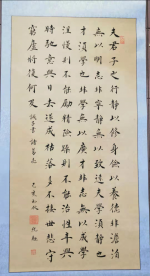 夫君子之行靜以修身儉以養德非澹泊
無以明志非寧靜無以致遠夫學須靜也
才須學也非學無以廣才非志無以成學
淫慢則不能勵精險躁則不能治性年與
時馳意與日去遂成枯落多不接世悲守
窮廬將復何及 誡子書 諸葛亮